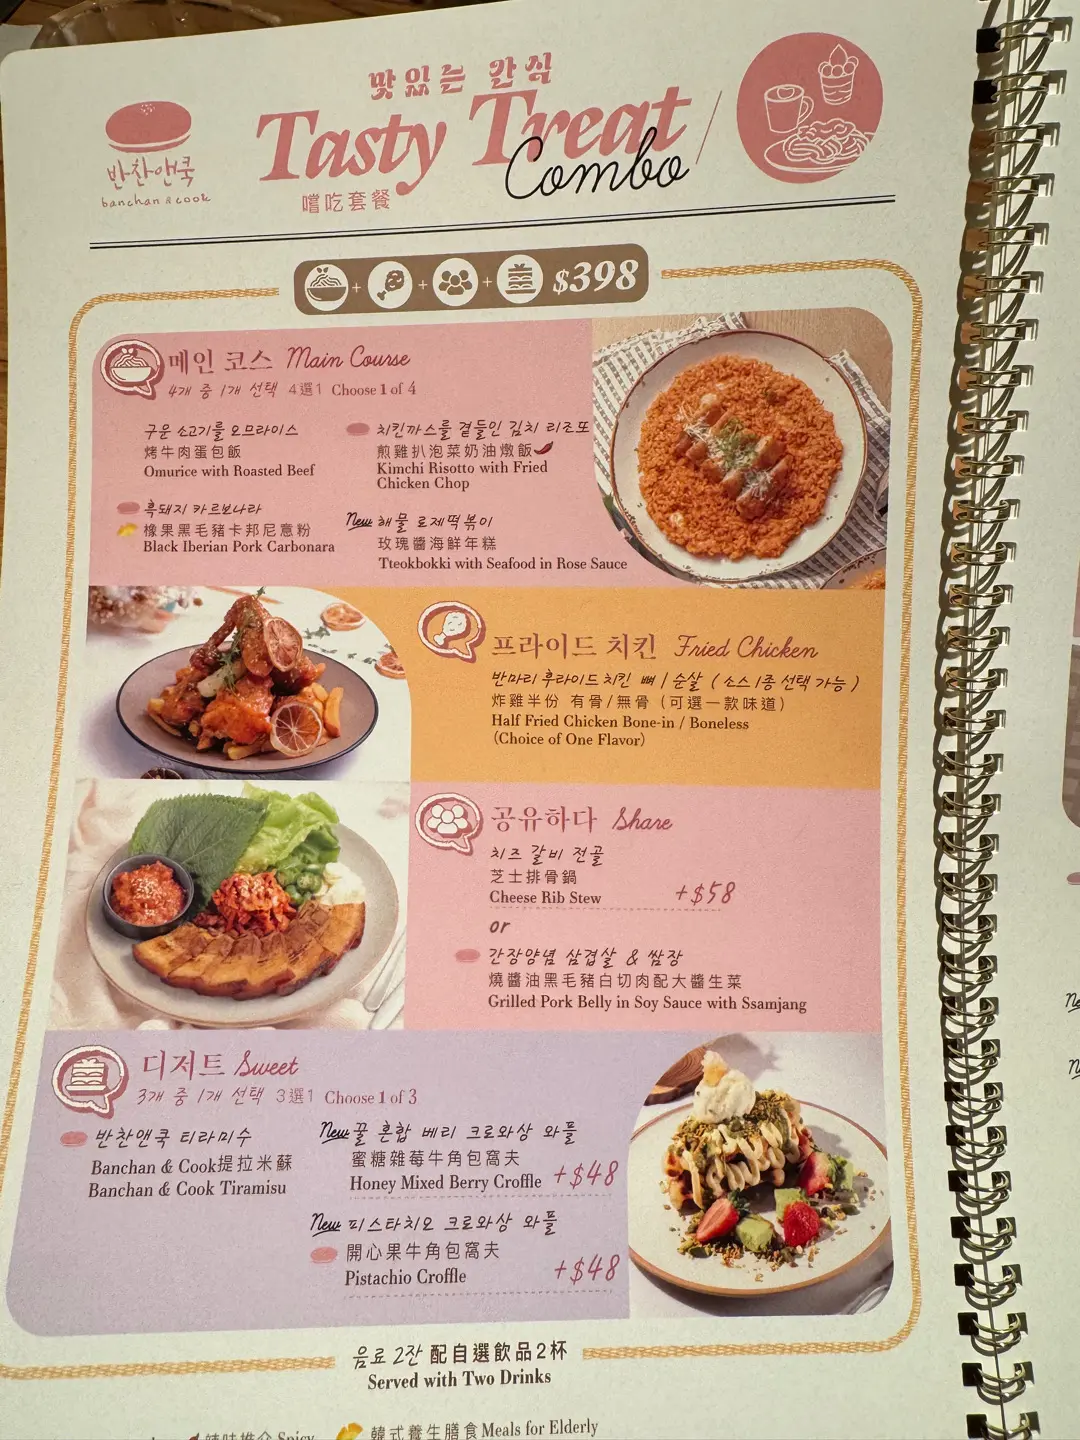 맛있는 간식
Tasty Treat
Combo
嚐吃套餐
반찬앤쿡
banchan & cook
+ + + $398
메인 코스 Main Course
4개 중 1개 선택 4選1 Choose 1 of 4
구운 소고기를 오므라이스
烤牛肉蛋包飯
Omurice with Roasted Beef
치킨까스를 곁들인 김치 리조또
煎雞扒泡菜奶油燉飯
Kimchi Risotto with Fried
Chicken Chop
흑돼지 카르보나라
橡果黑毛豬卡邦尼意粉
Black Iberian Pork Carbonara
New 해물 로제떡볶이
玫瑰醬海鮮年糕
Tteokbokki with Seafood in Rose Sauce
프라이드 치킨 Fried Chicken
반마리 후라이드치킨 뼈 / 순살 ( 소스1종 선택 가능 )
炸雞半份 有骨/無骨 (可選一款味道)
Half Fried Chicken Bone-in / Boneless
(Choice of One Flavor)
공유하다 Share
치즈 갈비 전골
芝士排骨鍋
Cheese Rib Stew +$58
or
간장양념 삼겹살 & 쌈장
燒醬油黑毛豬白切肉配大醬生菜
Grilled Pork Belly in Soy Sauce with Ssamjang
디저트 Sweet
3개 중 1개 선택 3選1 Choose 1 of 3
반찬앤쿡 티라미수
Banchan & Cook提拉米蘇
Banchan & Cook Tiramisu
New 꿀 혼합 베리 크로와상 와플
蜜糖雜莓牛角包窩夫
Honey Mixed Berry Croffle +$48
New 피스타치오 크로와상 와플
開心果牛角包窩夫
Pistachio Croffle +$48
음료 2잔 配自選飲品2杯
Served with Two Drinks
辣味推介 Spicy
韓式養生膳食 Meals for Elderly